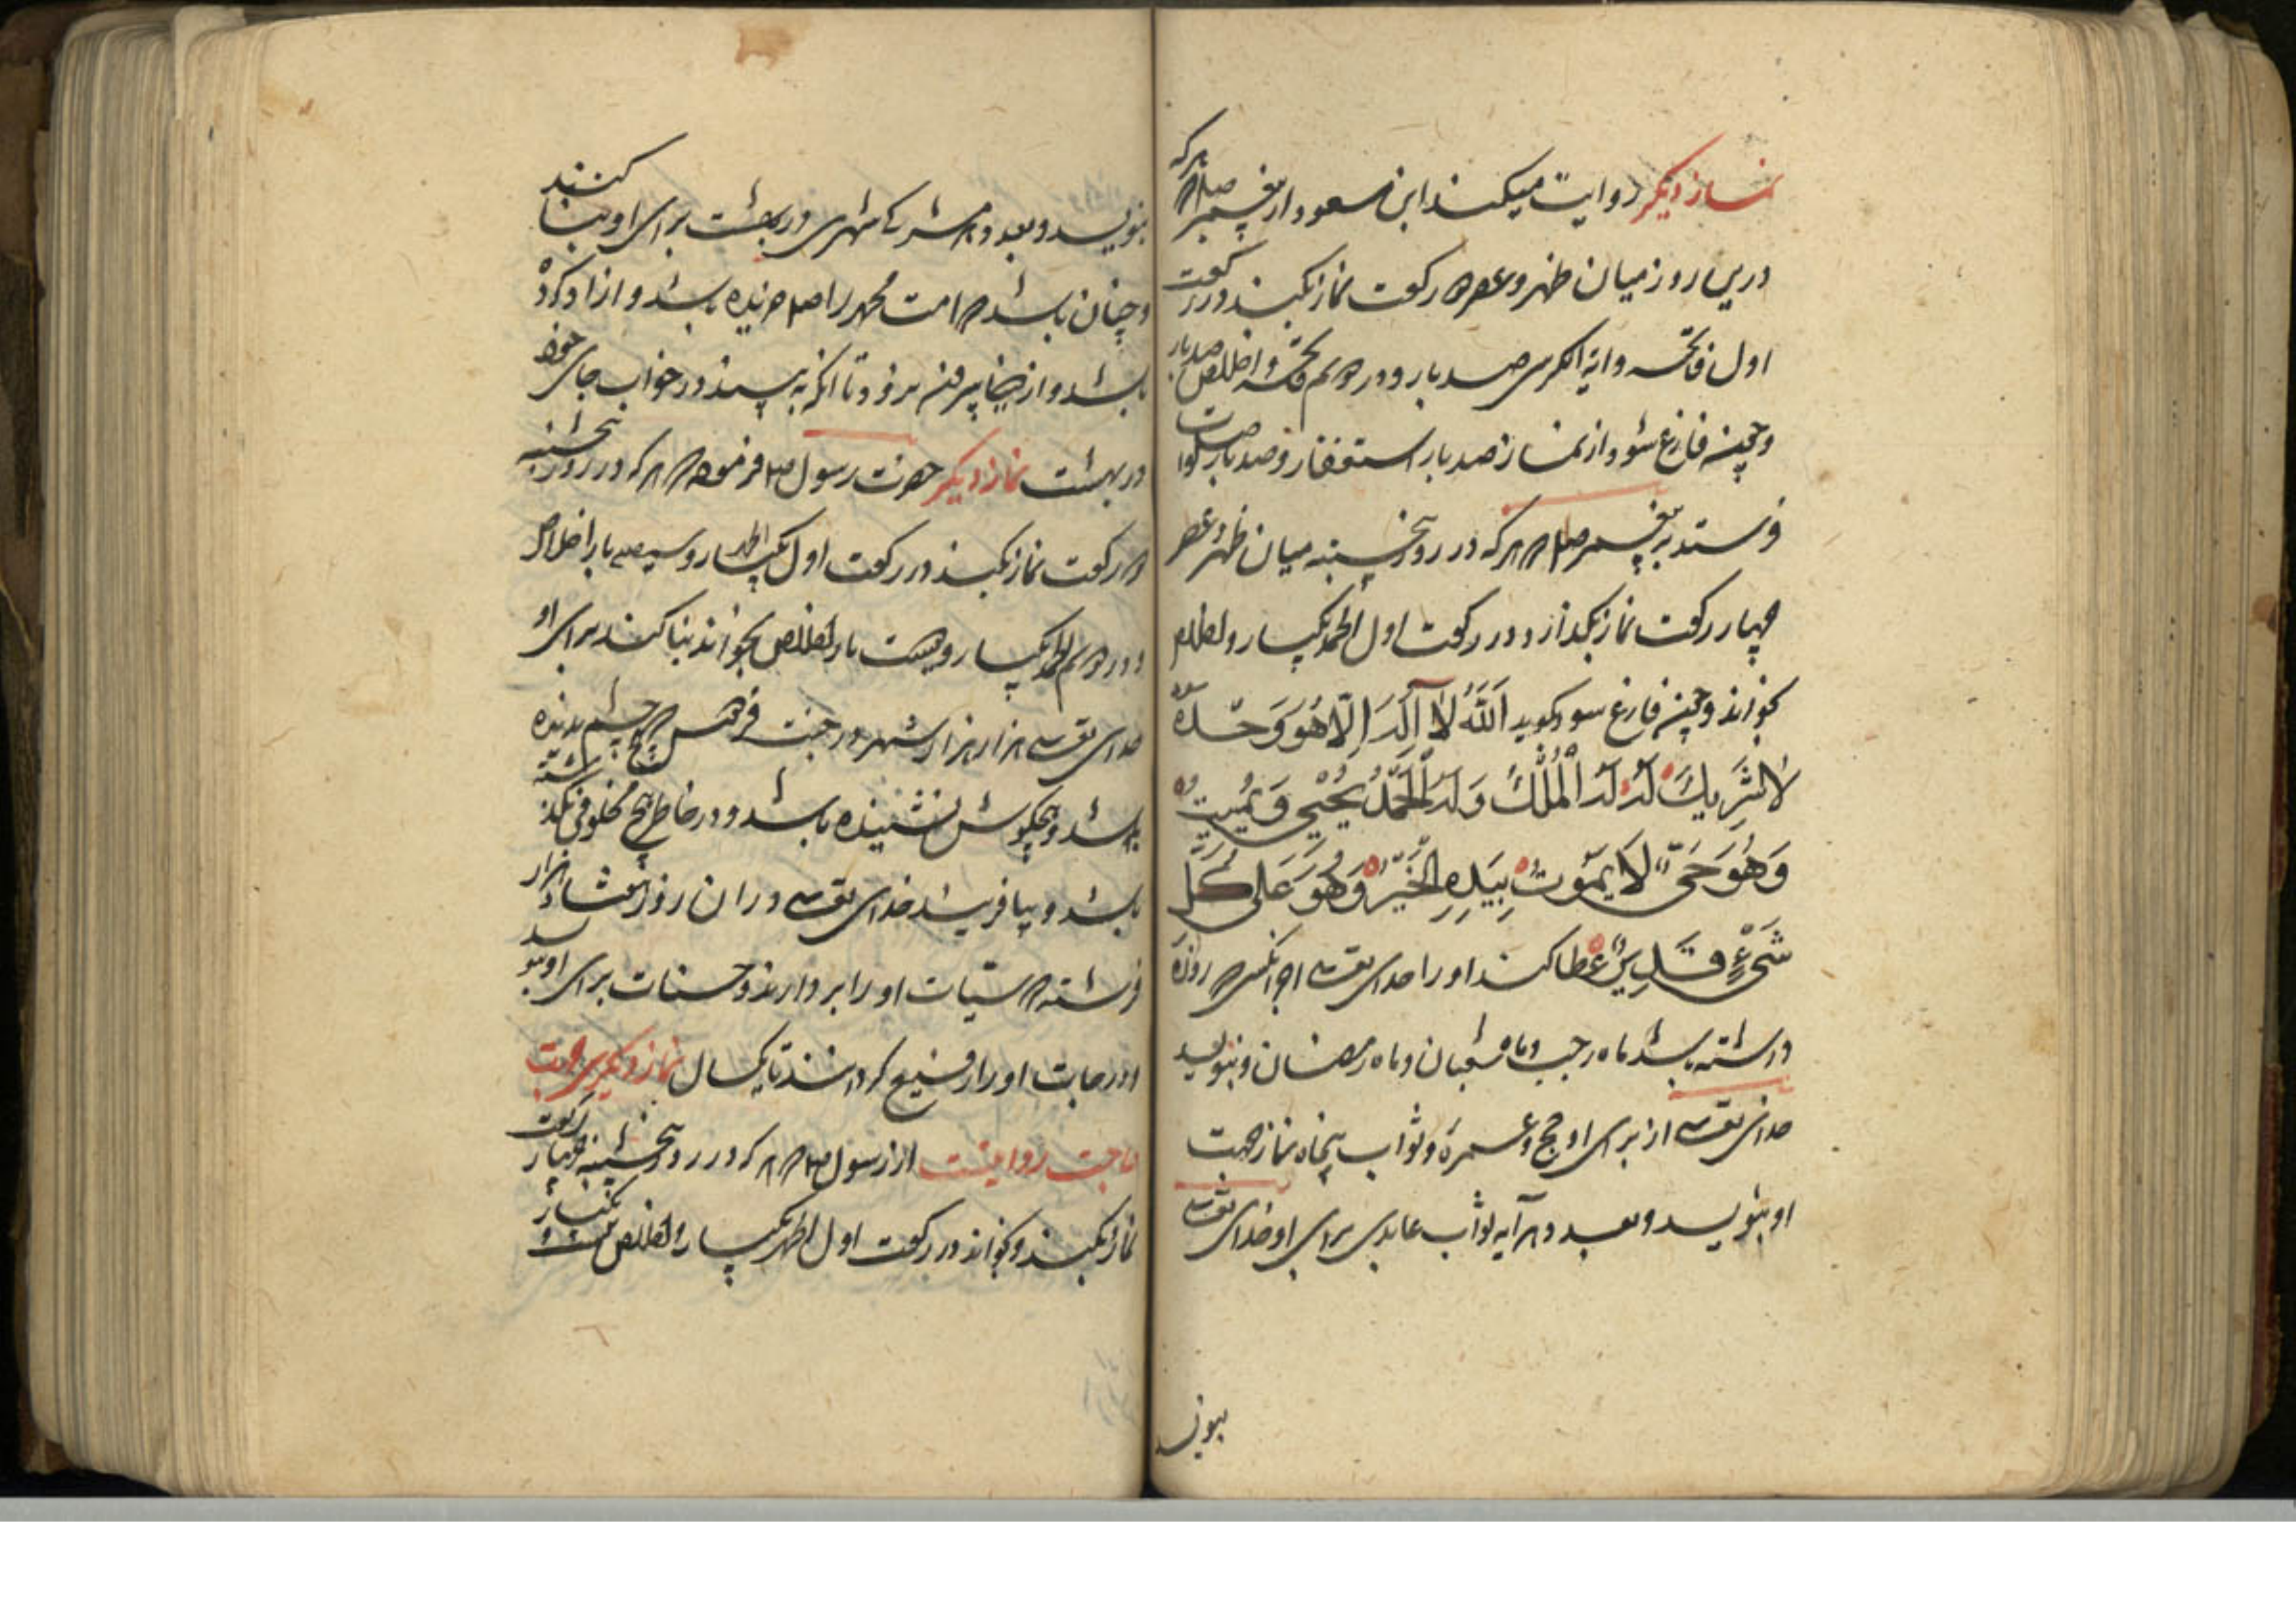 نماز دیکر روایت میکند ابن مسعود از پیغمبر صلم که هرکه
درین روز میان ظهر و عصر دو رکعت نماز بکند در رکعت
اول فاتحه و ایة الکرسی صد بار و در دویم فاتحه و اخلاص صد بار
و چون فارغ شود از نماز صد بار استغفار و صد بار صلوات
فرستد بر پیغمبر صلم که هرکه در روز پنجشنبه میان ظهر و عصر
چهار رکعت نماز بکذارد و در رکعت اول الحمد یکبار و
بخواند و چون فارغ شود بکوید اَللّٰهُ لَا اِلٰهَ اِلَّا هُوَ وَحْدَهُ
لَا شَرِیكَ لَهُ لَهُ الْمُلْكُ وَلَهُ الْحَمْدُ یُحْیِی وَ یُمِیتُ
وَهُوَ حَیٌّ لَا یَمُوتُ بِیَدِهِ الْخَیْرُ وَهُوَ عَلٰی كُلِّ
شَیْءٍ قَدِیرٌ عطا کند او را خدای تعالی اجر انکس که روزه
داشته باشد ماه رجب و ماه شعبان و ماه رمضان و بنویسد
خدای تعالی از برای او حج و عمره و ثواب پنجاه نماز جهت
او بنویسد و بعدد هر آیه ثواب عابدی برای او خدای تعالی
بنویسد
بنویسد و بعدد هر مشرکی شهری در بهشت برای او بنا کنند
و چنان باشد که امت محمد را صلم خریده باشد و ازاد کرده
باشد و از دنیا بیرون نرود تا انکه به بیند در خواب جای خود
در بهشت نماز دیکر حضرت رسول صلم فرموده که هرکه در روز پنجشنبه
دو رکعت نماز بکند در رکعت اول یکبار و سیصد بار اخلاص
و در دویم الحمد یکبار و دویست بار اخلاص بخواند بنا کند برای او
خدای تعالی هزار هزار شهر در جنت فردوس که هیچ چشم ندیده
باشد و هیچ کوش نشنیده باشد و در خاطر هیچ مخلوقی نکذشته
باشد و بیافریند خدای تعالی در ان روز هفتاد هزار
فرشته که سیئات او را بردارند و حسنات برای او بنویسد
و درجات او را رفیع کردانند تا یکسال نماز دیکر جهت
حاجت روا از رسول صلم که هرکه در روز پنجشنبه چهار رکعت
نماز بکند و بخواند در رکعت اول الحمد یکبار و اخلاص